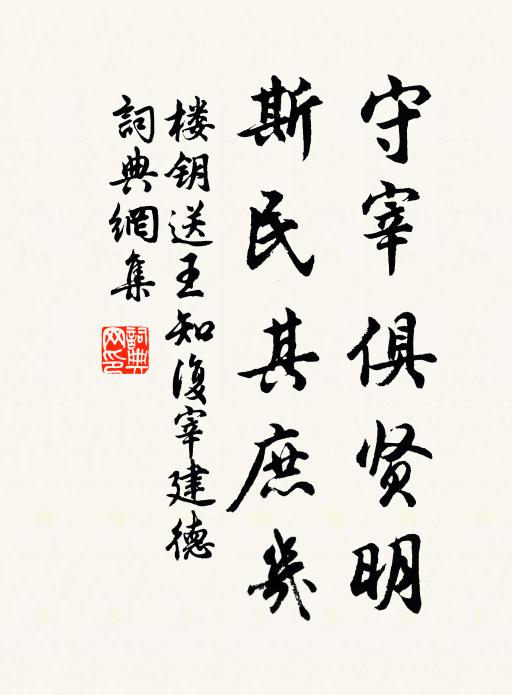 守宰俱贤明
斯民其庶幾
楼钥送王知復宰建德
詞典網集
詞典网印